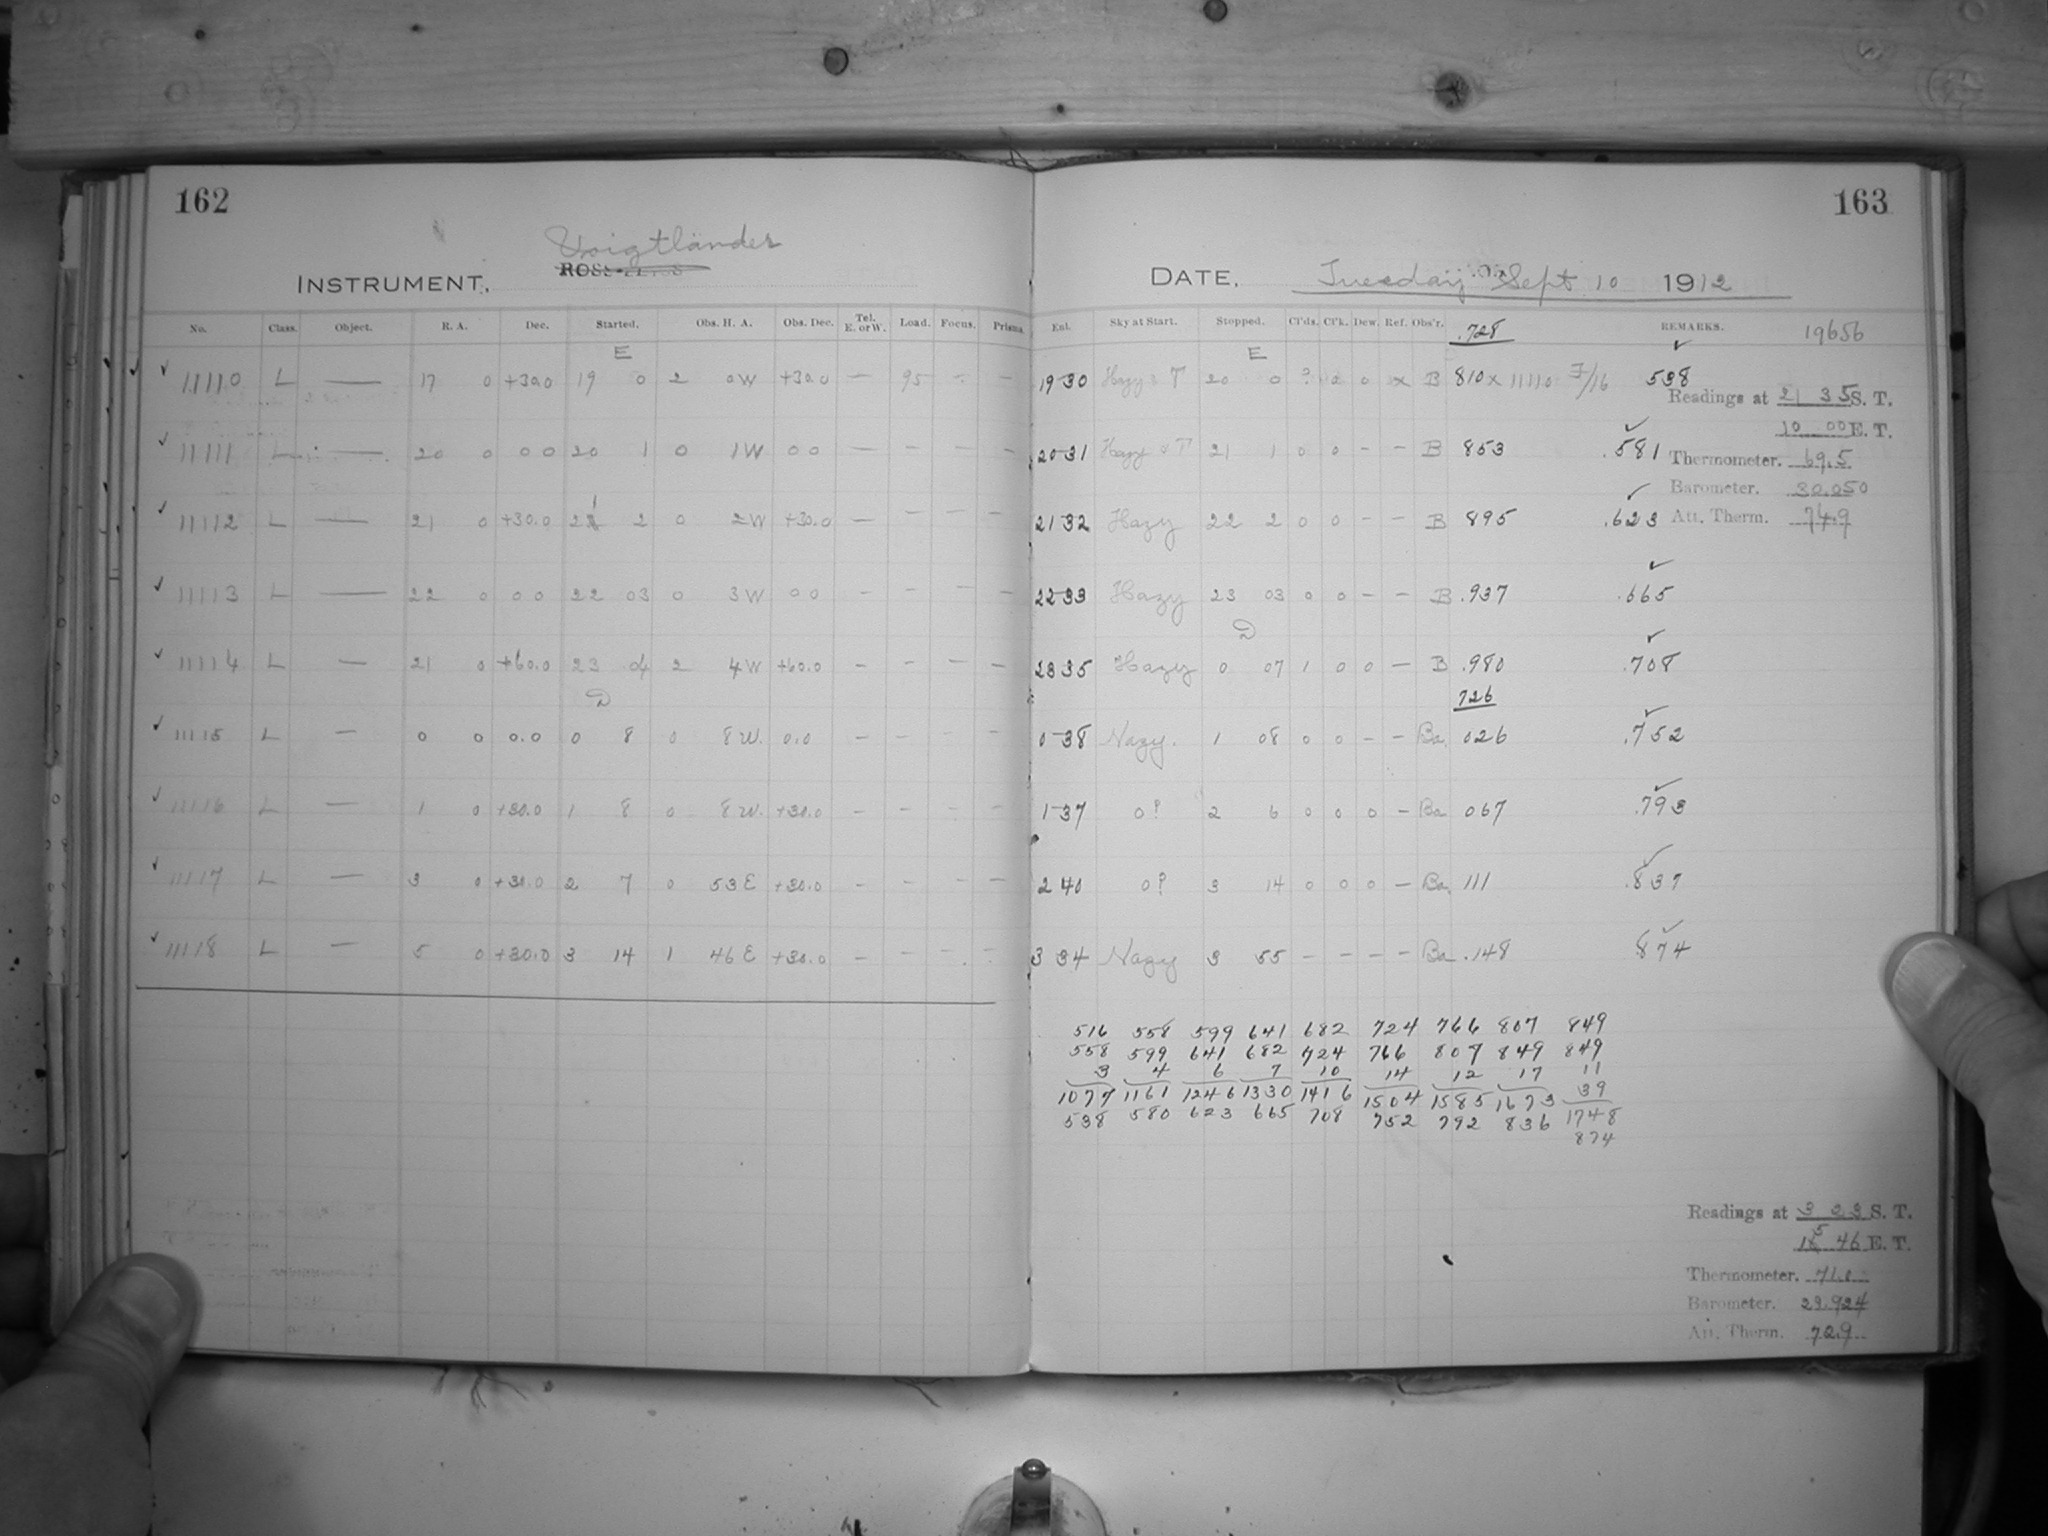 162
Voigtländer
INSTRUMENT,
No. Class. Object. R. A. Dec. Started. Obs. H. A. Obs. Dec. Tel. E. or W. Load. Focus. Prisms
E
11110 L — 17 0 +30.0 19 0 2 0W +30.0 — 95 - —
11111 L — 20 0 0 0 20 1 0 1W 0 0 — — — —
11112 L — 21 0 +30.0 21 2 0 2W +30.0 — — — —
11113 L — 22 0 0 0 22 03 0 3W 0 0 — — — —
11114 L — 21 0 +60.0 23 04 2 4W +60.0 — — — —
D
11115 L — 0 0 0.0 0 8 0 8W. 0.0 — — — —
11116 L — 1 0 +30.0 1 8 0 8W. +30.0 — — — —
11117 L — 3 0 +30.0 2 7 0 53E +30.0 — — — —
11118 L — 5 0 +30.0 3 14 1 46E +30.0 — — — —
163
DATE, Tuesday Sept 10 1912
Ent. Sky at Start. Stopped. Cl'ds. Cl'k. Dew. Ref. Obs'r. .728 REMARKS. 19656
E
19 30 Hazy T 20 0 ? 0 0 x B 810 x 11110 F/16 538
Readings at 21 35 S. T.
10 00 E. T.
20 31 Hazy T 21 1 0 0 - - B 853 .581
Thermometer. 69.5
Barometer. 30.050
21 32 Hazy 22 2 0 0 - - B 895 .623
Att. Therm. 74.9
22 33 Hazy 23 03 0 0 - - B .937 .665
D
23 35 Hazy 0 07 1 0 0 - B .980 .708
726
0 38 Hazy. 1 08 0 0 - - Ba. 026 .752
1 37 0? 2 6 0 0 0 - Ba 067 .793
2 40 0? 3 14 0 0 0 - Ba. 111 .837
3 34 Hazy 3 55 - - - - Ba .148 874
516 558 599 641 682 724 766 807 849
558 599 641 682 724 766 807 849 849
3 4 6 7 10 14 12 17 11
39
1077 1161 1246 1330 1416 1504 1585 1673 1748
538 580 623 665 708 752 792 836 874
Readings at 3 23 S. T.
15 46 E. T.
Thermometer. 71.0
Barometer. 29.924
Att. Therm. 72.9